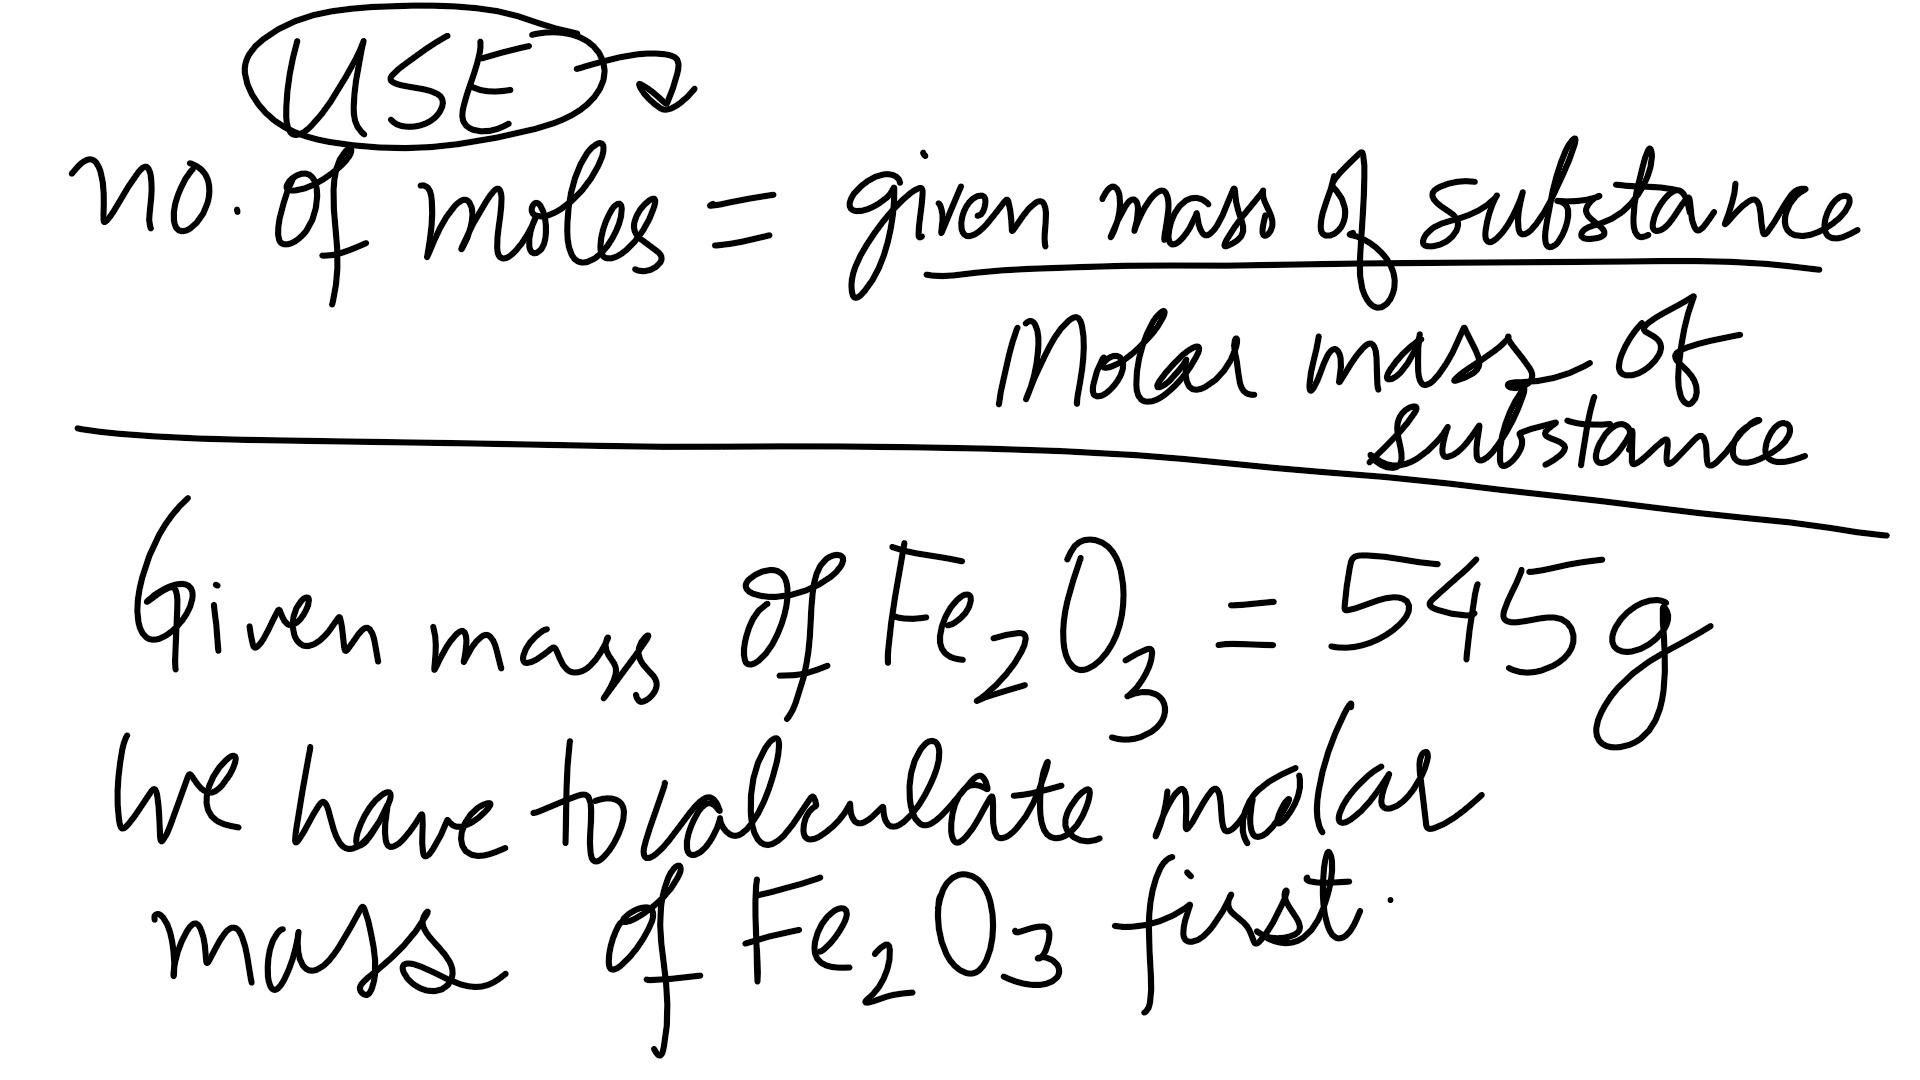 USE
no. of moles = given mass of substance
Molar mass of
substance
Given mass of Fe₂O₃ = 545g
We have to calculate molar
mass of Fe₂O₃ first.